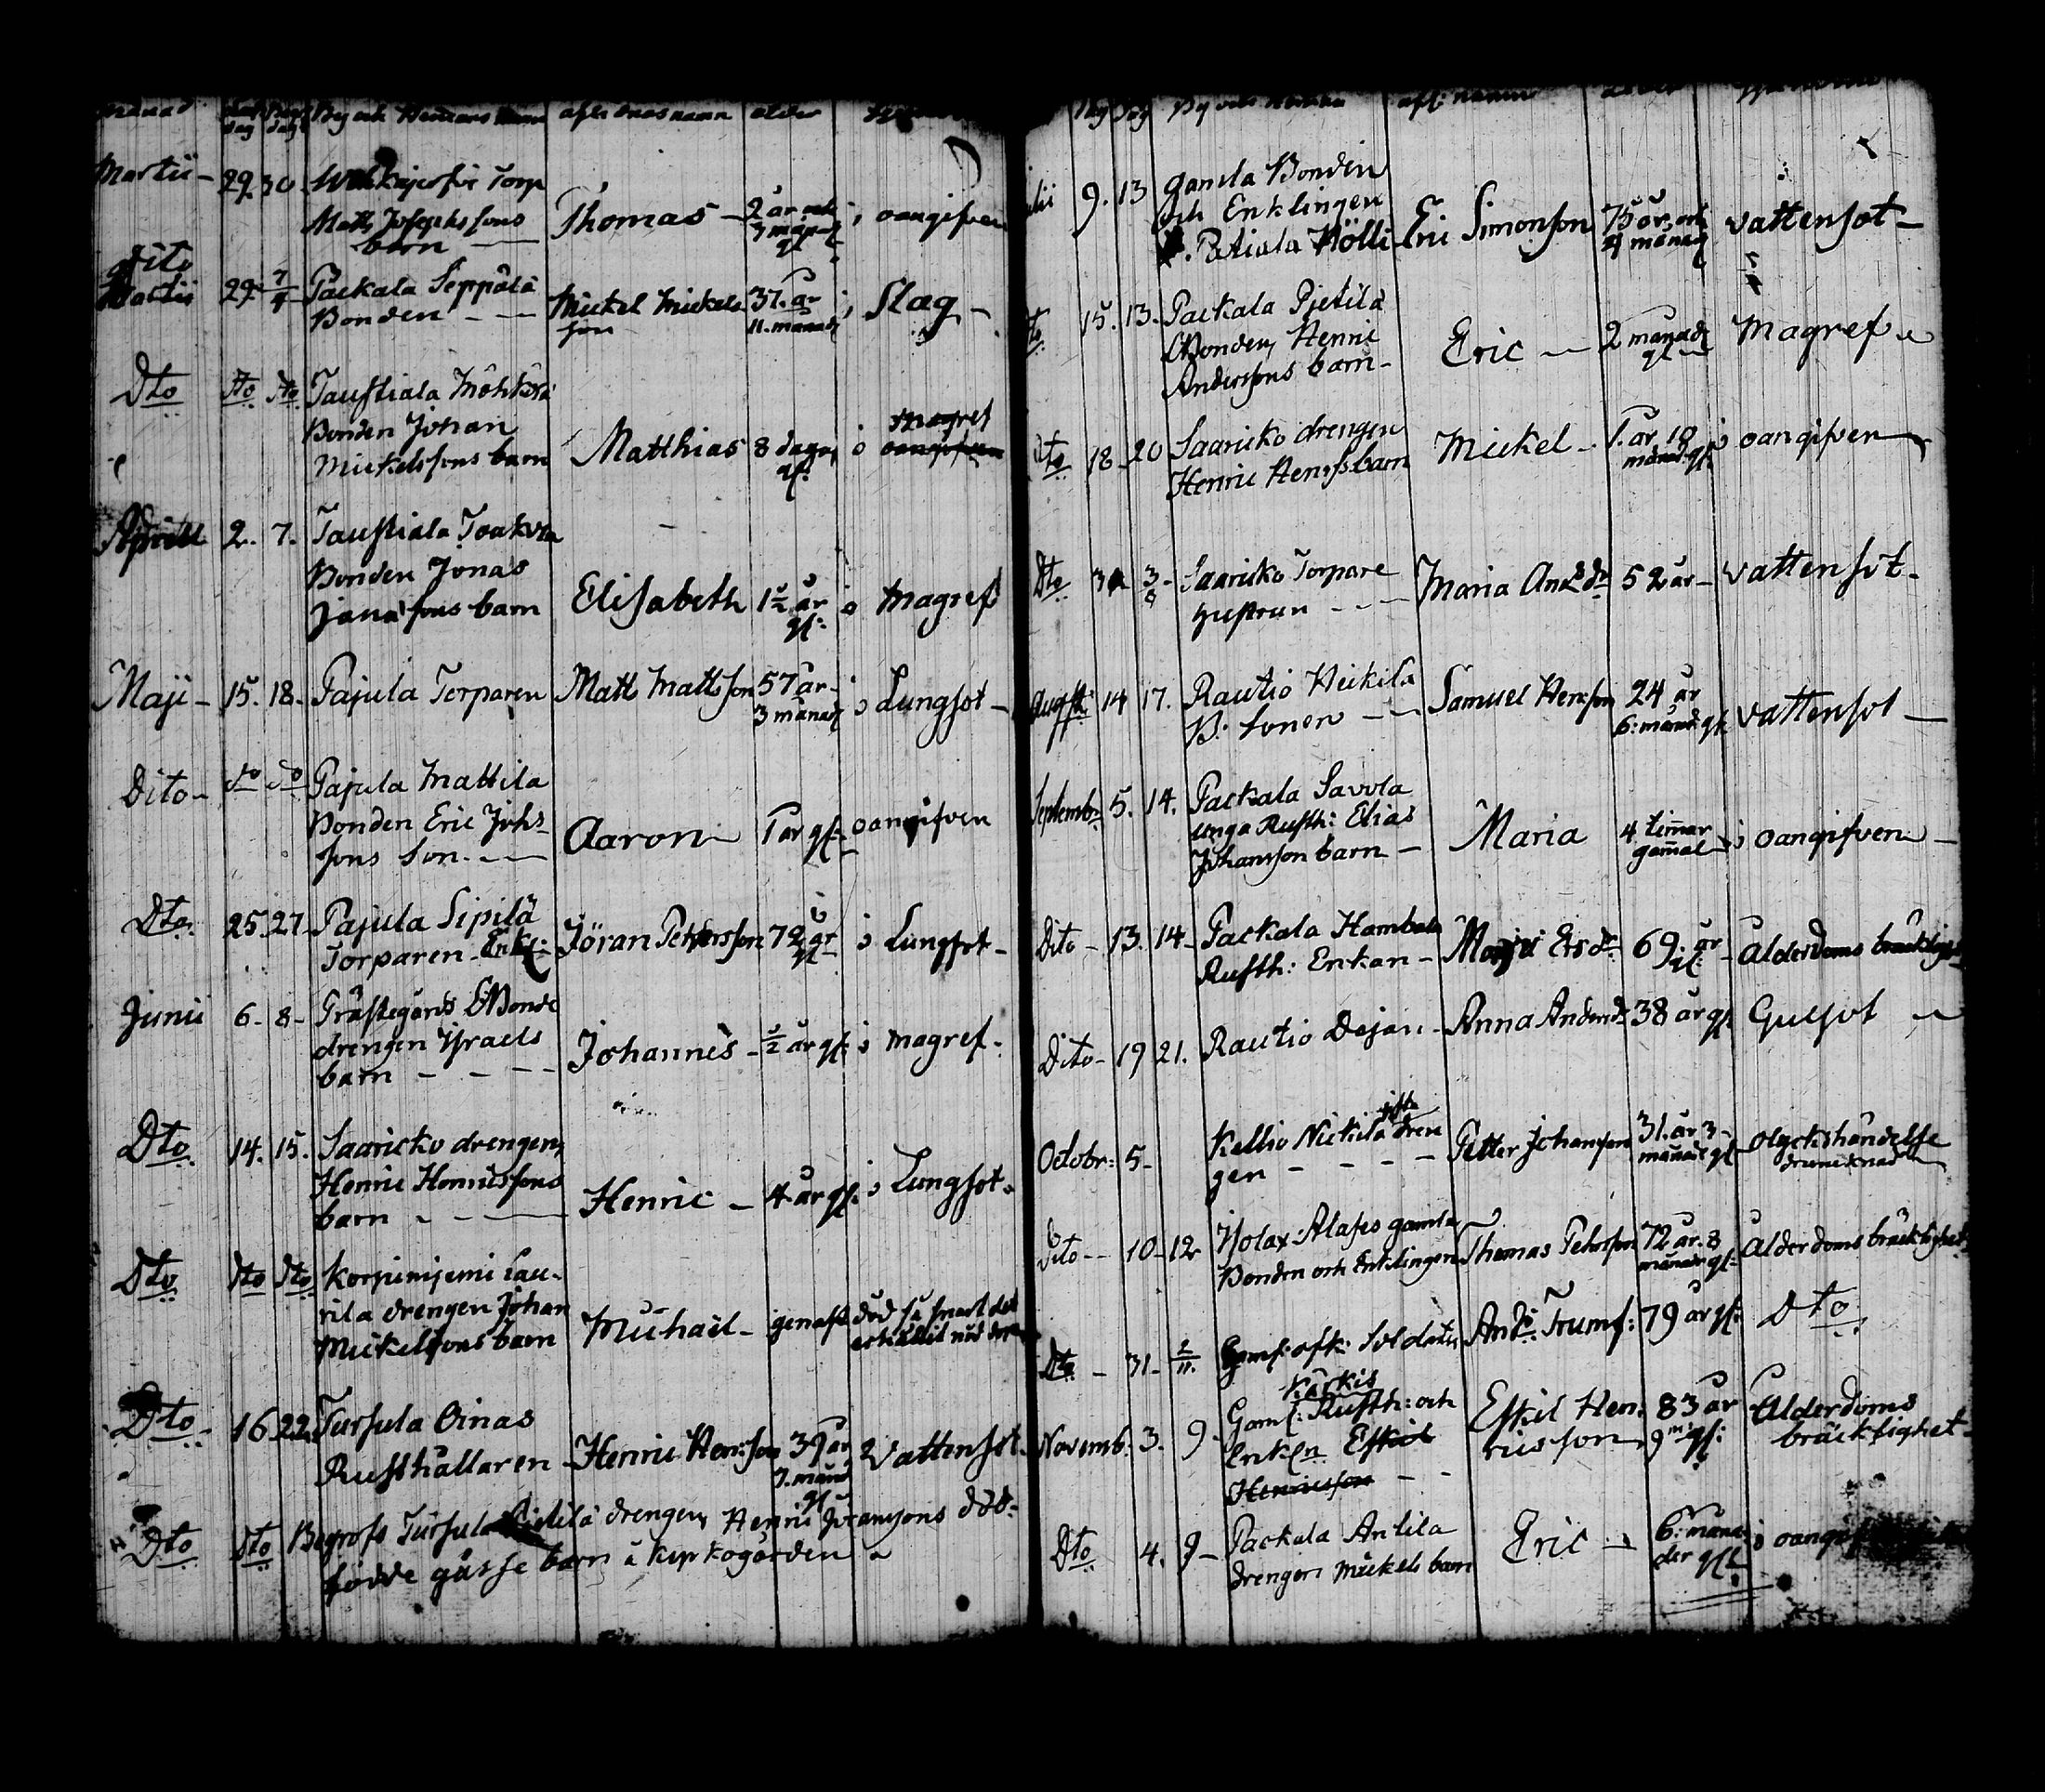 månad dag dag By och Hemans namn aflednas namn ålder
Martii - 29. 30 Torp
Matts Josephssons Thomas - 2 år och i oangifven
barn 7 månad gl
dito
Martii 29. 7/4 Packala Seppälä Mickel Mickels 37. år i Slag -
Bonden - - son 11. månad
Dto dto dto Taustiala Möhkerä
Bonden Johan
Mickelssons barn Matthias 8 dagar gl: i magref
oangifven
Aprill 2. 7. Taustiala Joakola
Bonden Jonas
Jonassons barn Elisabeth 1½ år gl: i magref
Maji - 15. 18. Pajula Torparen Matts Mattsson 57 år - 3 månad i Lungsot -
Dito - do do Pajula Mattila
Bonden Eric Johs
sons Son. - - Aaron 1 år gl: oangifven
Dto. 25. 27. Pajula Sipilä
Torparen - Enkl: Jöran Petersson 72 år gl i Lungsot -
Junii 6 - 8 - Prästegårds Bonde
drengen Israels
barn - - - - Johannes - ½ år gl: i magref -
Dto 14. 15. Saaricko drengen,
Henric Henricssons
barn - - Henric - 4 år gl: i Lungsot.
Dto dto dto Korpimjemi Lau-
rila drengen Johan
Mickelssons barn Michaël - genast död så snart det
erhållit nöd dop
Dto - 16 22. Tursula Oinas
Rusthållaren - Henric Henrsson 39 år 7. månad gl Vattensot.
Dto dto Begrofs Tursula drengen Henric Joransons död-
födde gåsse barn i kyrkogården
dag dag By och Heman afl: namn
9. 13 gamla Bonden
och Enklingen
Patiala Hölli Eric Simonson 75 år och 4 månad Vattensot -
15. 13. Packala Pietilä
Bonden, Henric
Anderssons barn - Eric - 2 månad gl - Magref
dto 18 - 20 Saaricko drengen
Henric Henrssbarn Mickel - 1. år 10 månad gl: i oangifven
Dto 3 - Saaricko Torpare
hustrun - - - Maria Andsdr 52 år - Vattensot -
Augsti 14 17. Rautio Heikilä
B: sonen - - Samuel Henrsson 24 år 6: månad gl Vattensot -
Septembr 5. 14. Packala Savola
unga Rusth: Elias
Johansson barn - Maria 4 timmar gamal i oangifven -
Dito - 13. 14 - Packala Hambala
Rusth: Enkan - Marja Ersdr 69. år gl: - Ålderdoms bräcklighet
Dito - 19 21. Rautio Dejan - Anna Andersdr 38 år gl Gulsot
Octobr: 5 - Kellio Nickilä gifte dren
gen - - - - Petter Johansson 31. år 3 - månad gl olyckshändelse
drunknad
Dito - - 10 - 12 Holax Alajes gamla
Bonden och Enklingen Thomas Pehrsson 72 år. 8 månad gl: Ålderdoms bräcklighet
Dto - 31 - 2/11. Gaml: afsk: Soldaten Ands Trumf: 79 år gl: Dto
Kärkis
Novemb: 3. 9. Gaml: Rusth: och
Enkln Eskil Eskil Hen- 83 år Ålderdoms
Henricsson - - ricsson 9 m gl: bräcklighet -
Dto 4. 9 - Packala Antila
drengen Mickels barn Eric - 6: måna-
der gl: i